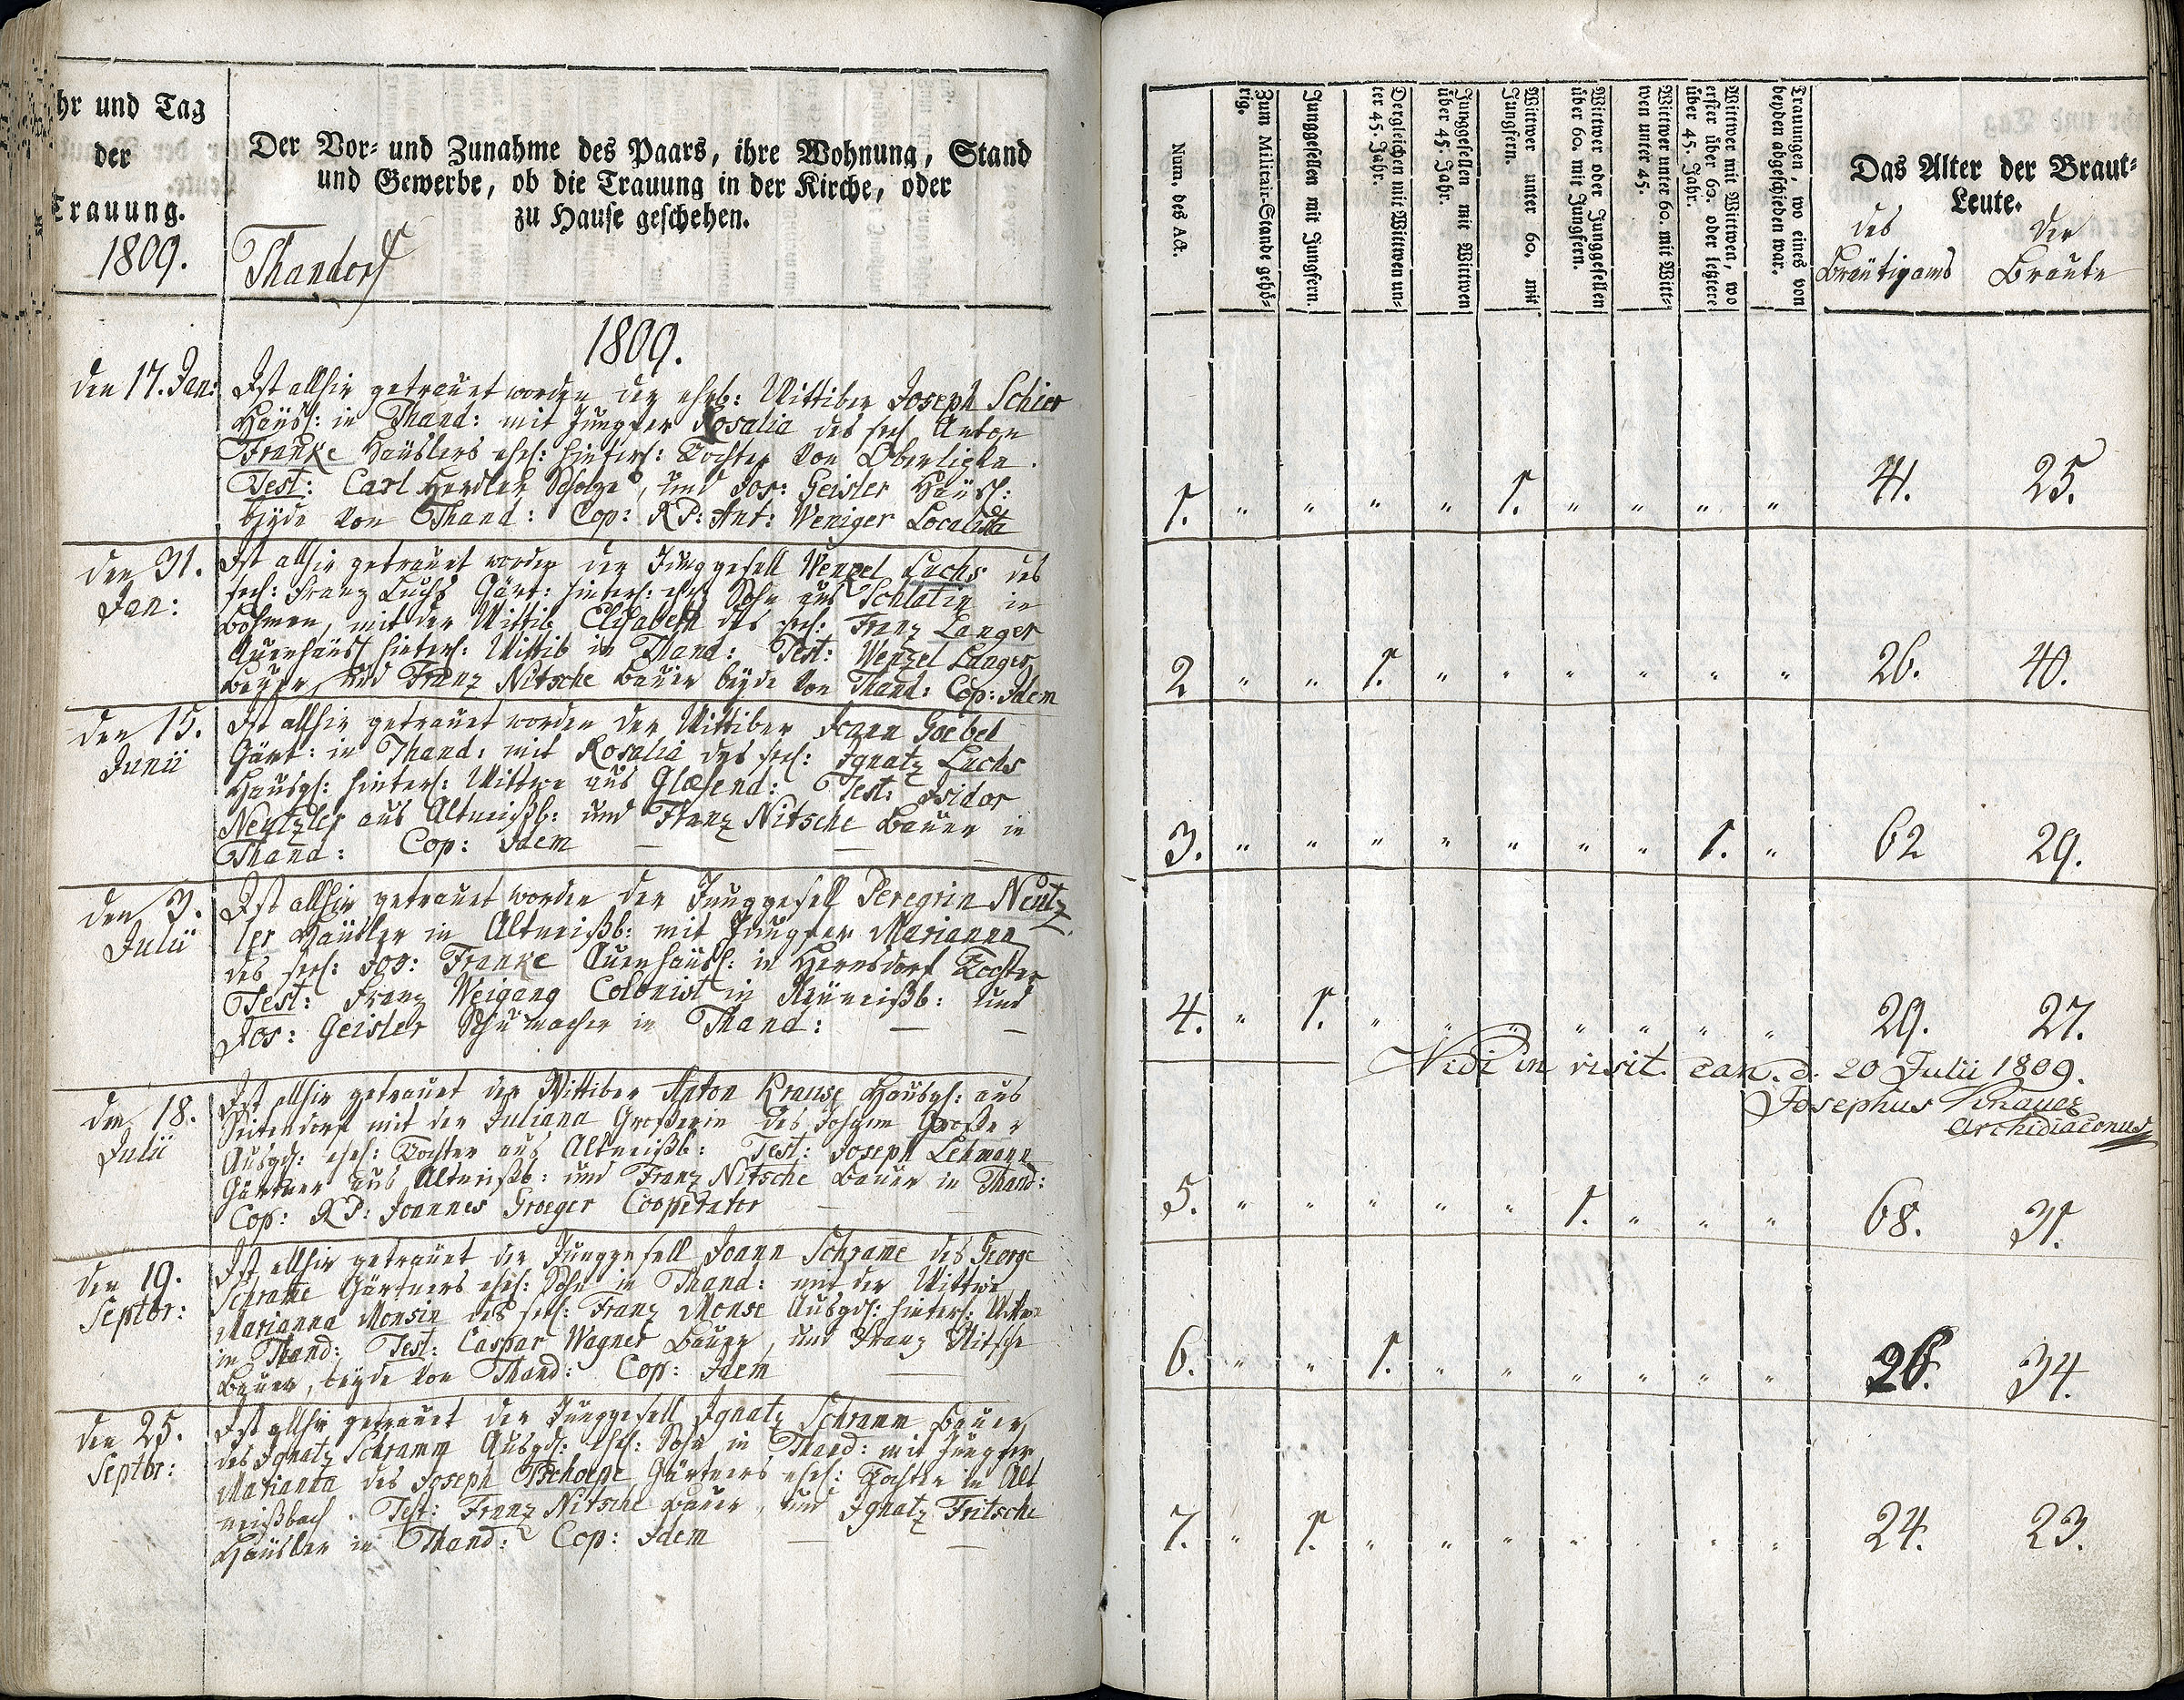 hr und Tag
der
Trauung.
1809.
Der Vor= und Zunahme des Paars, ihre Wohnung, Stand
und Gewerbe, ob die Trauung in der Kirche, oder
zu Hause geschehen.
Thandorf
1809.
den 17. Jan:
Ist allhir getrauet worden der ehrb: Wittiber Joseph Schier
Häusl: in Thand: mit Jungfer Rosalia des seel Anton
Franke Häuslers ehel: hinterl: Tochter von
Test: Carl Herdler Scholze, und Jos: Geisler Häusl:
beyde von Thand: Cop: RP: Ant: Weniger Localista
den 31.
Jan:
Ist allhir getrauet worden der Junggesell Wenzel Luchs des
seel: Franz Luchs Gärt: hinterl: ehel Sohn aus Schlatin in
Böhmen, mit der Wittib Elisabeth des seel: Franz Langer
Auenhäusl hinterl: Wittib in Thand: Test: Wenzel Langer
Bauer, und Franz Nitsche Bauer beyde von Thand: Cop: Idem
den 15.
Junii
Ist allhir getrauet worden der Wittiber Joann Goebel
Gärt: in Thand: mit Rosalia des seel: Ignatz Luchs
Hausgl: hinterl: Wittwe aus Glæsend: Test: Isidor
Neutzler aus Altneißb: und Franz Nitsche Bauer in
Thand: Cop: Idem
den 3.
Julii
Ist allhir getrauet worden der Junggesell Peregrin Neutz
ler Häusler in Altneißb: mit Jungfer Marianna
des seel: Jos: Franke Auenhäusl: in Hernsdorf Tochter
Test: Franz Weigang Colonist in Neuneißb: und
Jos: Geisler Schumacher in Thand:
den 18.
Julii
Ist allhir getrauet der Wittiber Anton Krause Hausgl: aus
Seitendorf mit der Juliana Großerin des Großer
Ausgdl: ehel: Tochter aus Altneißb: Test: Joseph Lehmann
Gärtner aus Altneißb: und Franz Nitsche Bauer in Thand:
Cop: RP: Joannes Groeger Cooperator
den 19.
Septbr:
Ist allhir getrauet der Junggesell Joann Schrame des George
Schrame Gärtners ehel: Sohn in Thand: mit der Wittwe
Marianna Monsin des seel: Franz Monse Ausgdl: hinterl: Wittwe
in Thand: Test: Caspar Wagner Bauer, und Franz Nitsche
Bauer, beyde von Thand: Cop: Idem
den 25.
Septbr:
Ist allhir getrauet der Junggesell Ignatz Schramm Bauer,
des Ignatz Schramm Ausgdl: ehel: Sohn in Thand: mit Jungfer
Marianna des Joseph Tschoepe Gärtners ehel: Tochter in Alt
neißbach. Test: Franz Nitsche Bauer, und Ignatz Fritsche
Häusler in Thand: Cop: Idem
Num. des Act.
Zum Militair=Stande gehö=
rig.
Junggesellen mit Jungfern.
Dergleichen mit Wittwen un=
ter 45. Jahr.
Junggesellen mit Wittwen
über 45. Jahr.
Wittwer unter 60. mit
Jungfern.
Wittwer oder Junggesellen
über 60. mit Jungfern.
Wittwer unter 60. mit Witt=
wen unter 45.
Wittwer mit Wittwen, wo
erster über 60. oder letztere
über 45. Jahr.
Trauungen, wo eines von
beyden abgeschieden war.
Das Alter der Braut=
Leute.
des Bräutigams
der Braute
1. " " " " 1. " " " " 41. 25.
2 " " 1. " " " " " " 26. 40.
3. " " " " " " " 1. " 62 29.
4. " 1. " " " " " " " 29. 27.
Vidi in visit. can. d. 20 Julii 1809.
Josephus Knauer
Archidiaconus
5. " " " " " 1. " " " 68. 31.
6. " " 1. " " " " " " 26. 34.
7. " 1. " " " " " " " 24. 23.